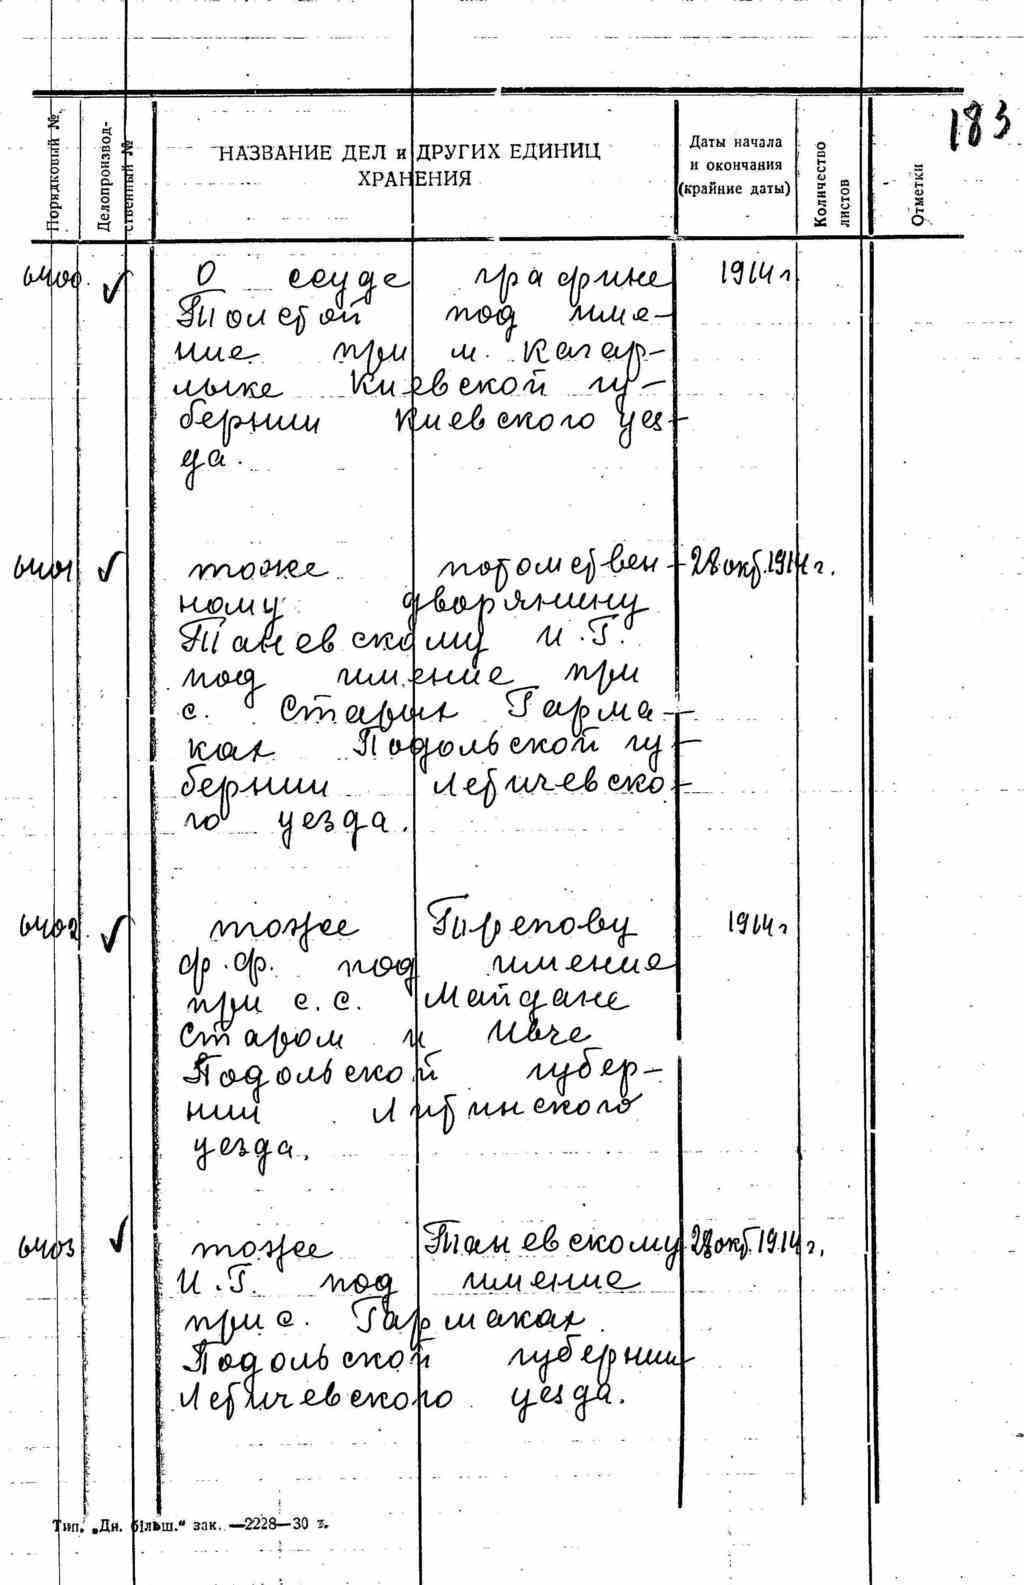 183
Порядковый №
Делопроизвод-
ственный №
НАЗВАНИЕ ДЕЛ и ДРУГИХ ЕДИНИЦ
ХРАНЕНИЯ
Даты начала
и окончания
(крайние даты)
Количество
листов
Отметки
6400. √ О ссуде графине 1914 г
Толстой под име-
ние при м. Кагар-
лыке Киевской гу-
бернии Киевского уез-
да.
6401 √ тоже потомствен- 28 окт. 1914 г.
ному дворянину
Таневскому И.Г.
под имение при
с. Старых Гарма-
ках Подольской гу-
бернии Летичевско-
го уезда.
6402. √ тоже Трепову 1914 г
Ф.Ф. под имение
при с.с. Майдане
Старом и Ивче
Подольской губер-
нии Литинского
уезда.
6403 √ тоже Таневскому 28 окт. 1914 г.
И.Г. под имение
при с. Гармаках
Подольской губернии
Летичевского уезда.
Тип. „Дн. більш." зак. —2228—30 т.